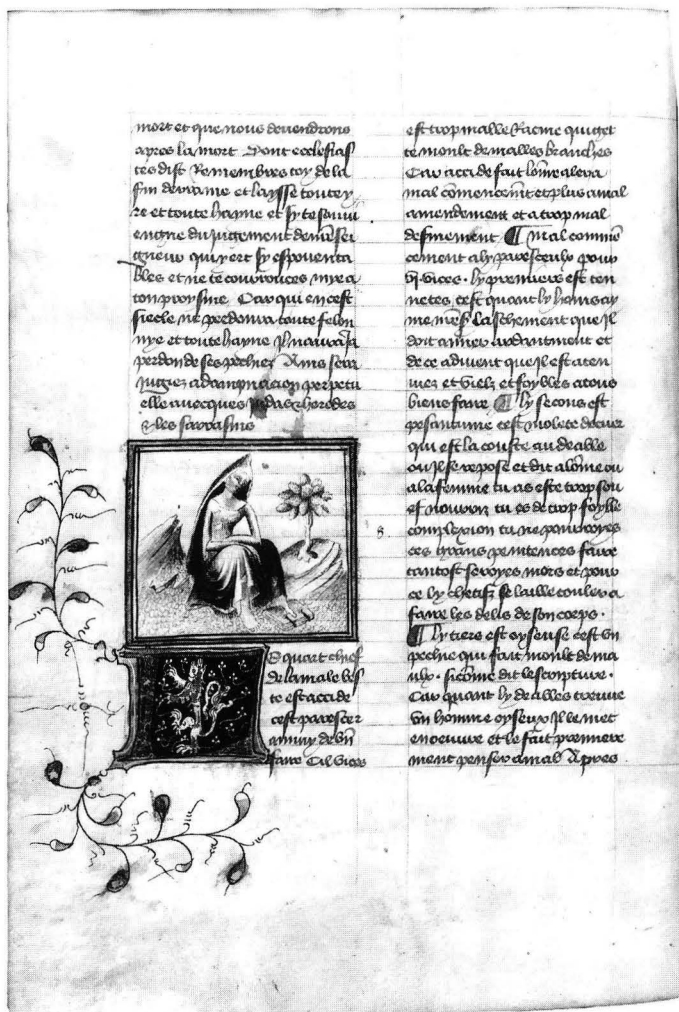 mort et que nous devendrons
apres la mort Dont ecclesias
tes dist Remembres toy de la
fin derraine et laysse toute y
re et toute hayne et sy te souvi
engne du jugement de nre sei
gneur qui yert sy espouenta
bles et ne te courrouces mye a
ton proysme Car qui en cest
siecle ne perdonra toute felon
nye et toute hayne Il naura ja
perdon de ses pechiez Ains sera
jugiez a dampnacion perpetu
elle avecques judas herodes
& les sarrasins
E quart chief
de la male bes
te est accide
cest paresce
a nuy de bn
faire Cil vices
est trop malle Racine qui get
te moult de malles branches
Car accide fait lome avera
mal comencemt et plus a mal
amendement et a trop mal
definement ¶ Mal commen
cement a ly paresceulx pour
vi vices ly premiers est ten
netes cest quant ly homs ay
me laschement que Il
doit aimer ardantment et
de ce advient que Il est aten
uiez et vielz et foybles a tous
biens faire ¶ ly secons est
cest molete de cuer
qui est la couste au deable
ou Il se repose et dit a lome ou
a la femme tu as este trop sou
ef nouriz tu es de trop foyble
complexion tu ne pourroyes
ces grans penitences faire
tantost seroyes mors et pour
ce ly chetifz se laille couler a
faire les delis de son corps
¶ ly tiers est oyseuse cest un
pechie qui fait moult de ma
ulx sicome dit lescripture
Car quant ly deables treuve
un homme oyseux Il le met
en oeuvre et le fait premiere
ment penser a mal Apres